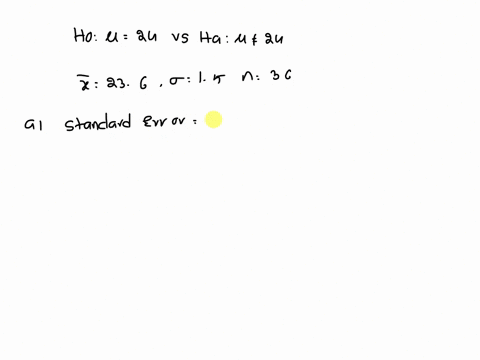 Ho: μ = 24 vs Ha: μ ≠ 24
x̄: 23.6, σ: 1.5 n: 36
a) Standard Error =